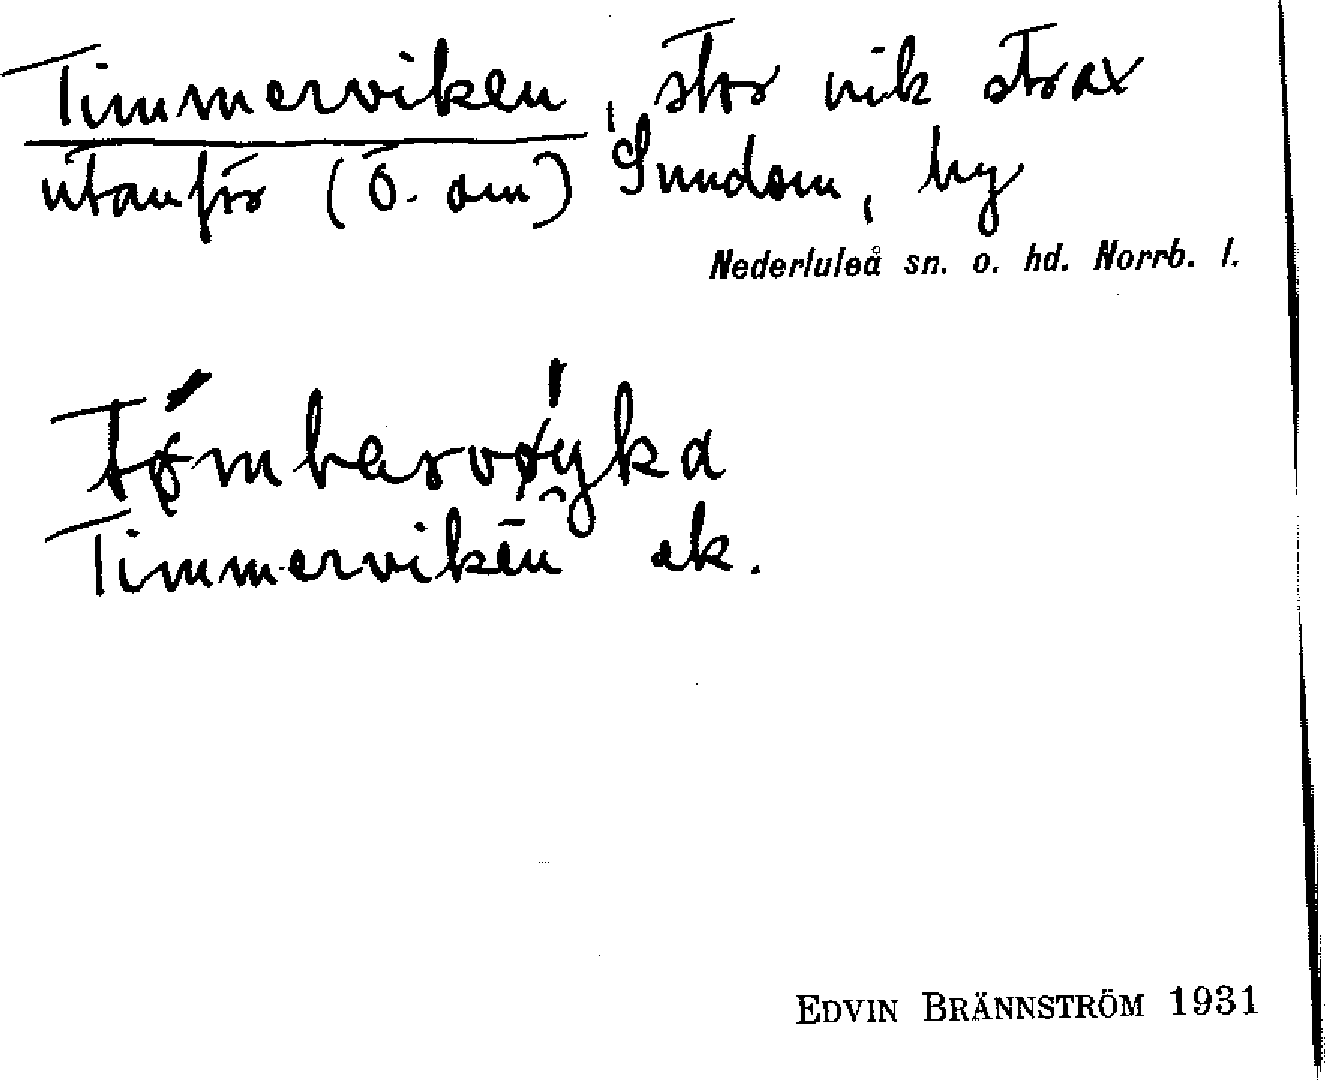 Timmerviken, stor vik strax
utanför (Ö. om) Sundom, by
Nederluleå sn. o. hd. Norrb. l.
tø̀mbarvǿyka
Timmerviken ek.
EDVIN BRÄNNSTRÖM 1931